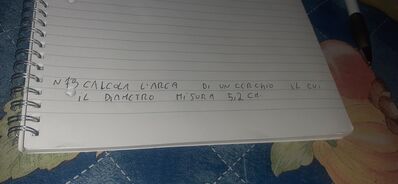 N 73 CALCOLA L'AREA DI UN CERCHIO IL CUI
IL DIAMETRO MISURA 5,2 CM.